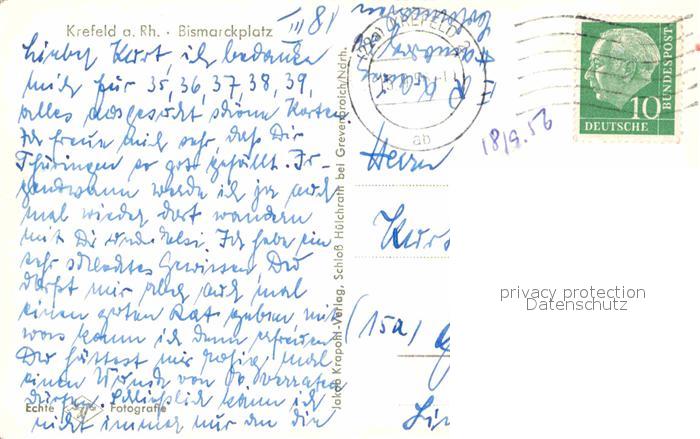 Krefeld a. Rh. · Bismarckplatz
III/81
Lieber Kurt, ich bedanke
mich für 35, 36, 37, 38, 39,
alles ausgesucht schöne Karten.
Ich freue mich sehr, daß Dir
Thüringen so gut gefällt. Ir-
gendwann werde ich ja auch
mal wieder dort wandern
mit Dir und Ilsi. Ich habe ein
sehr schlechtes Gewissen. Du
darfst mir aber auch mal
einen guten Rat geben mit
was kann ich denn erfreuen
Du hättest mir ruhig mal
einen Wunsch von verraten
dürfen. Schließlich kann ich
nicht immer nur an die
Echte Fotografie
Jakob Krapohl-Verlag, Schloß Hülchrath bei Grevenbroich/Ndrh.
(22a) KREFELD
ab
18/9.56
10
DEUTSCHE
BUNDESPOST
Herrn
Kurt
(15a)
privacy protection
Datenschutz